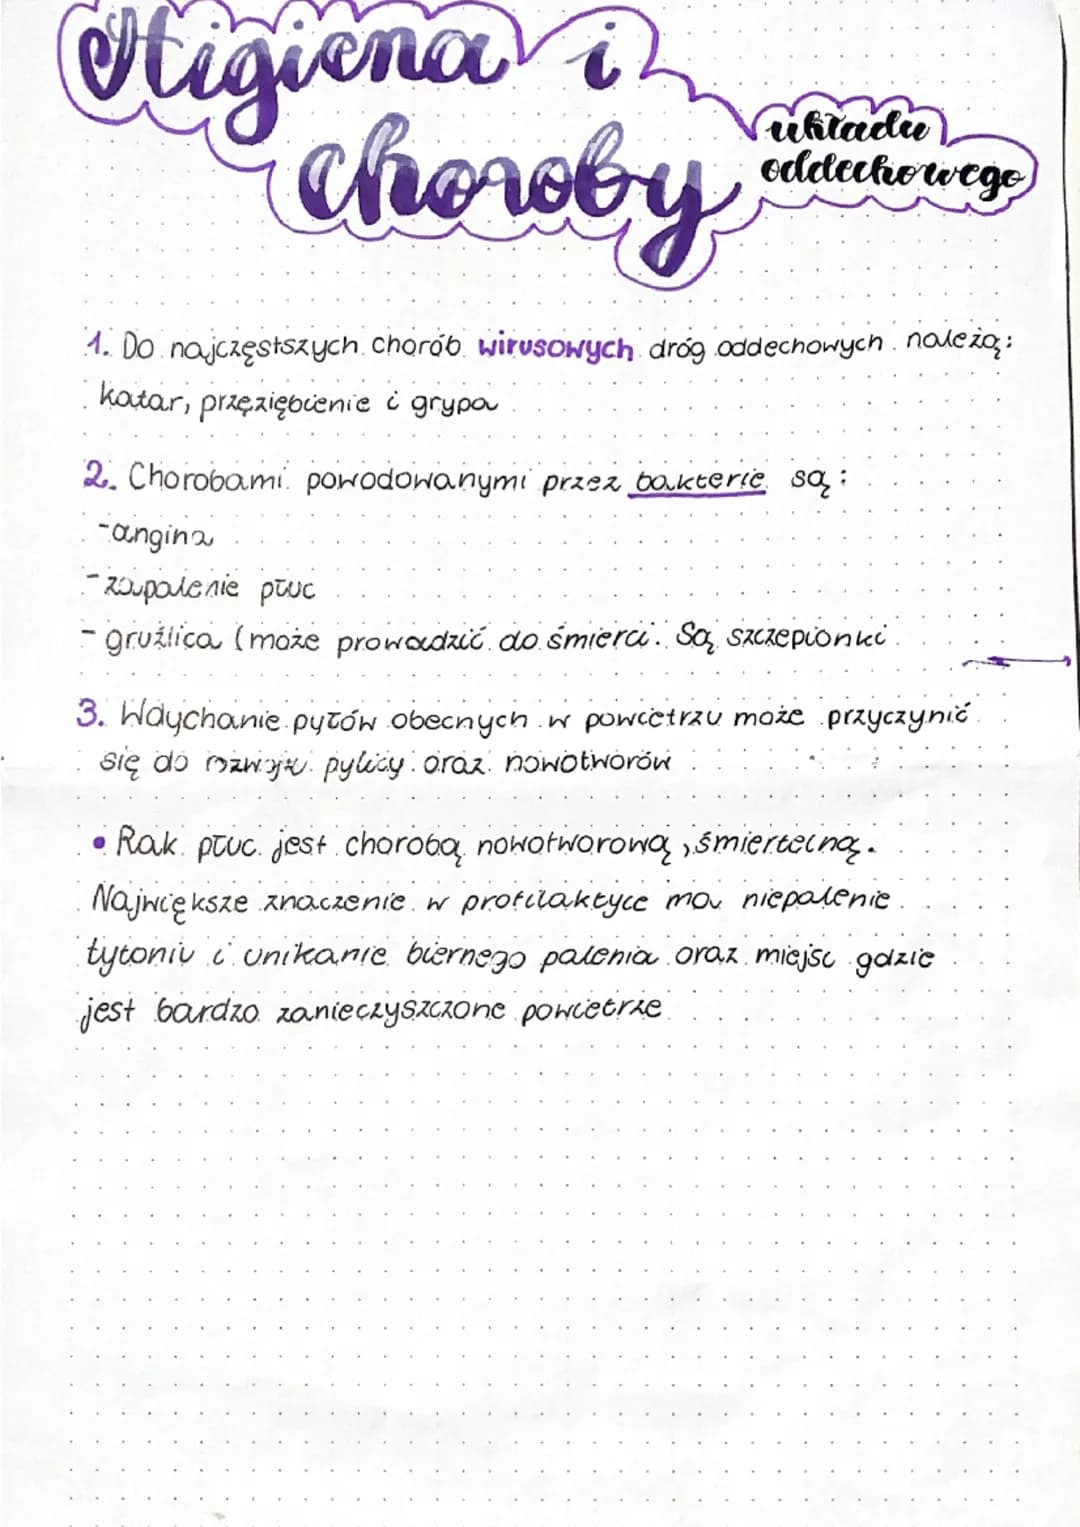 Higiena i
choroby
układu
oddechowego
1. Do najczęstszych chorób wirusowych dróg oddechowych należą:
katar, przęziębienie i grypa
2. Chorobami powodowanymi przez bakterie są:
-angina
-zapalenie płuc
- gruźlica (może prowadzić do śmierci. Są szczepionki
3. Wdychanie pyłów obecnych w powietrzu może przyczynić
się do rozwoju pylicy oraz nowotworów
• Rak płuc jest chorobą nowotworową, śmiertelną.
Największe znaczenie w profilaktyce ma niepalenie
tytoniu i unikanie biernego palenia oraz miejsc gdzie
jest bardzo zanieczyszczone powietrze